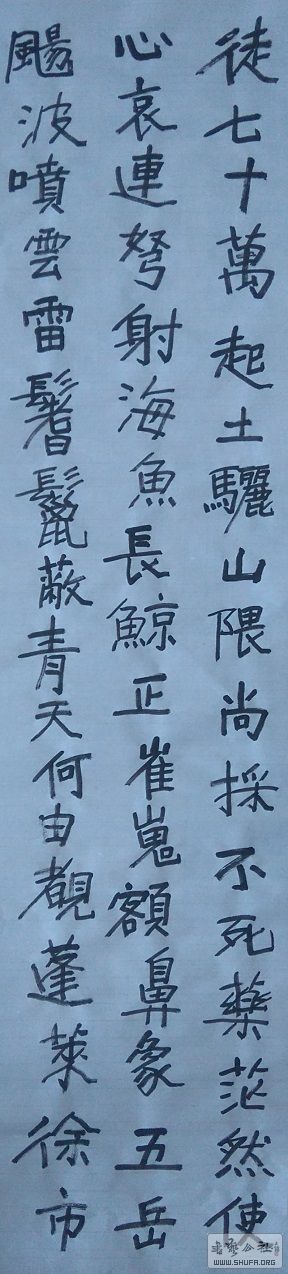 徒七十萬起土驪山隈尚採不死藥茫然使
心哀連弩射海魚長鯨正崔嵬額鼻象五岳
颺波噴雲雷鬐鬣蔽青天何由覩蓬萊徐市
WWW.SHUFA.ORG